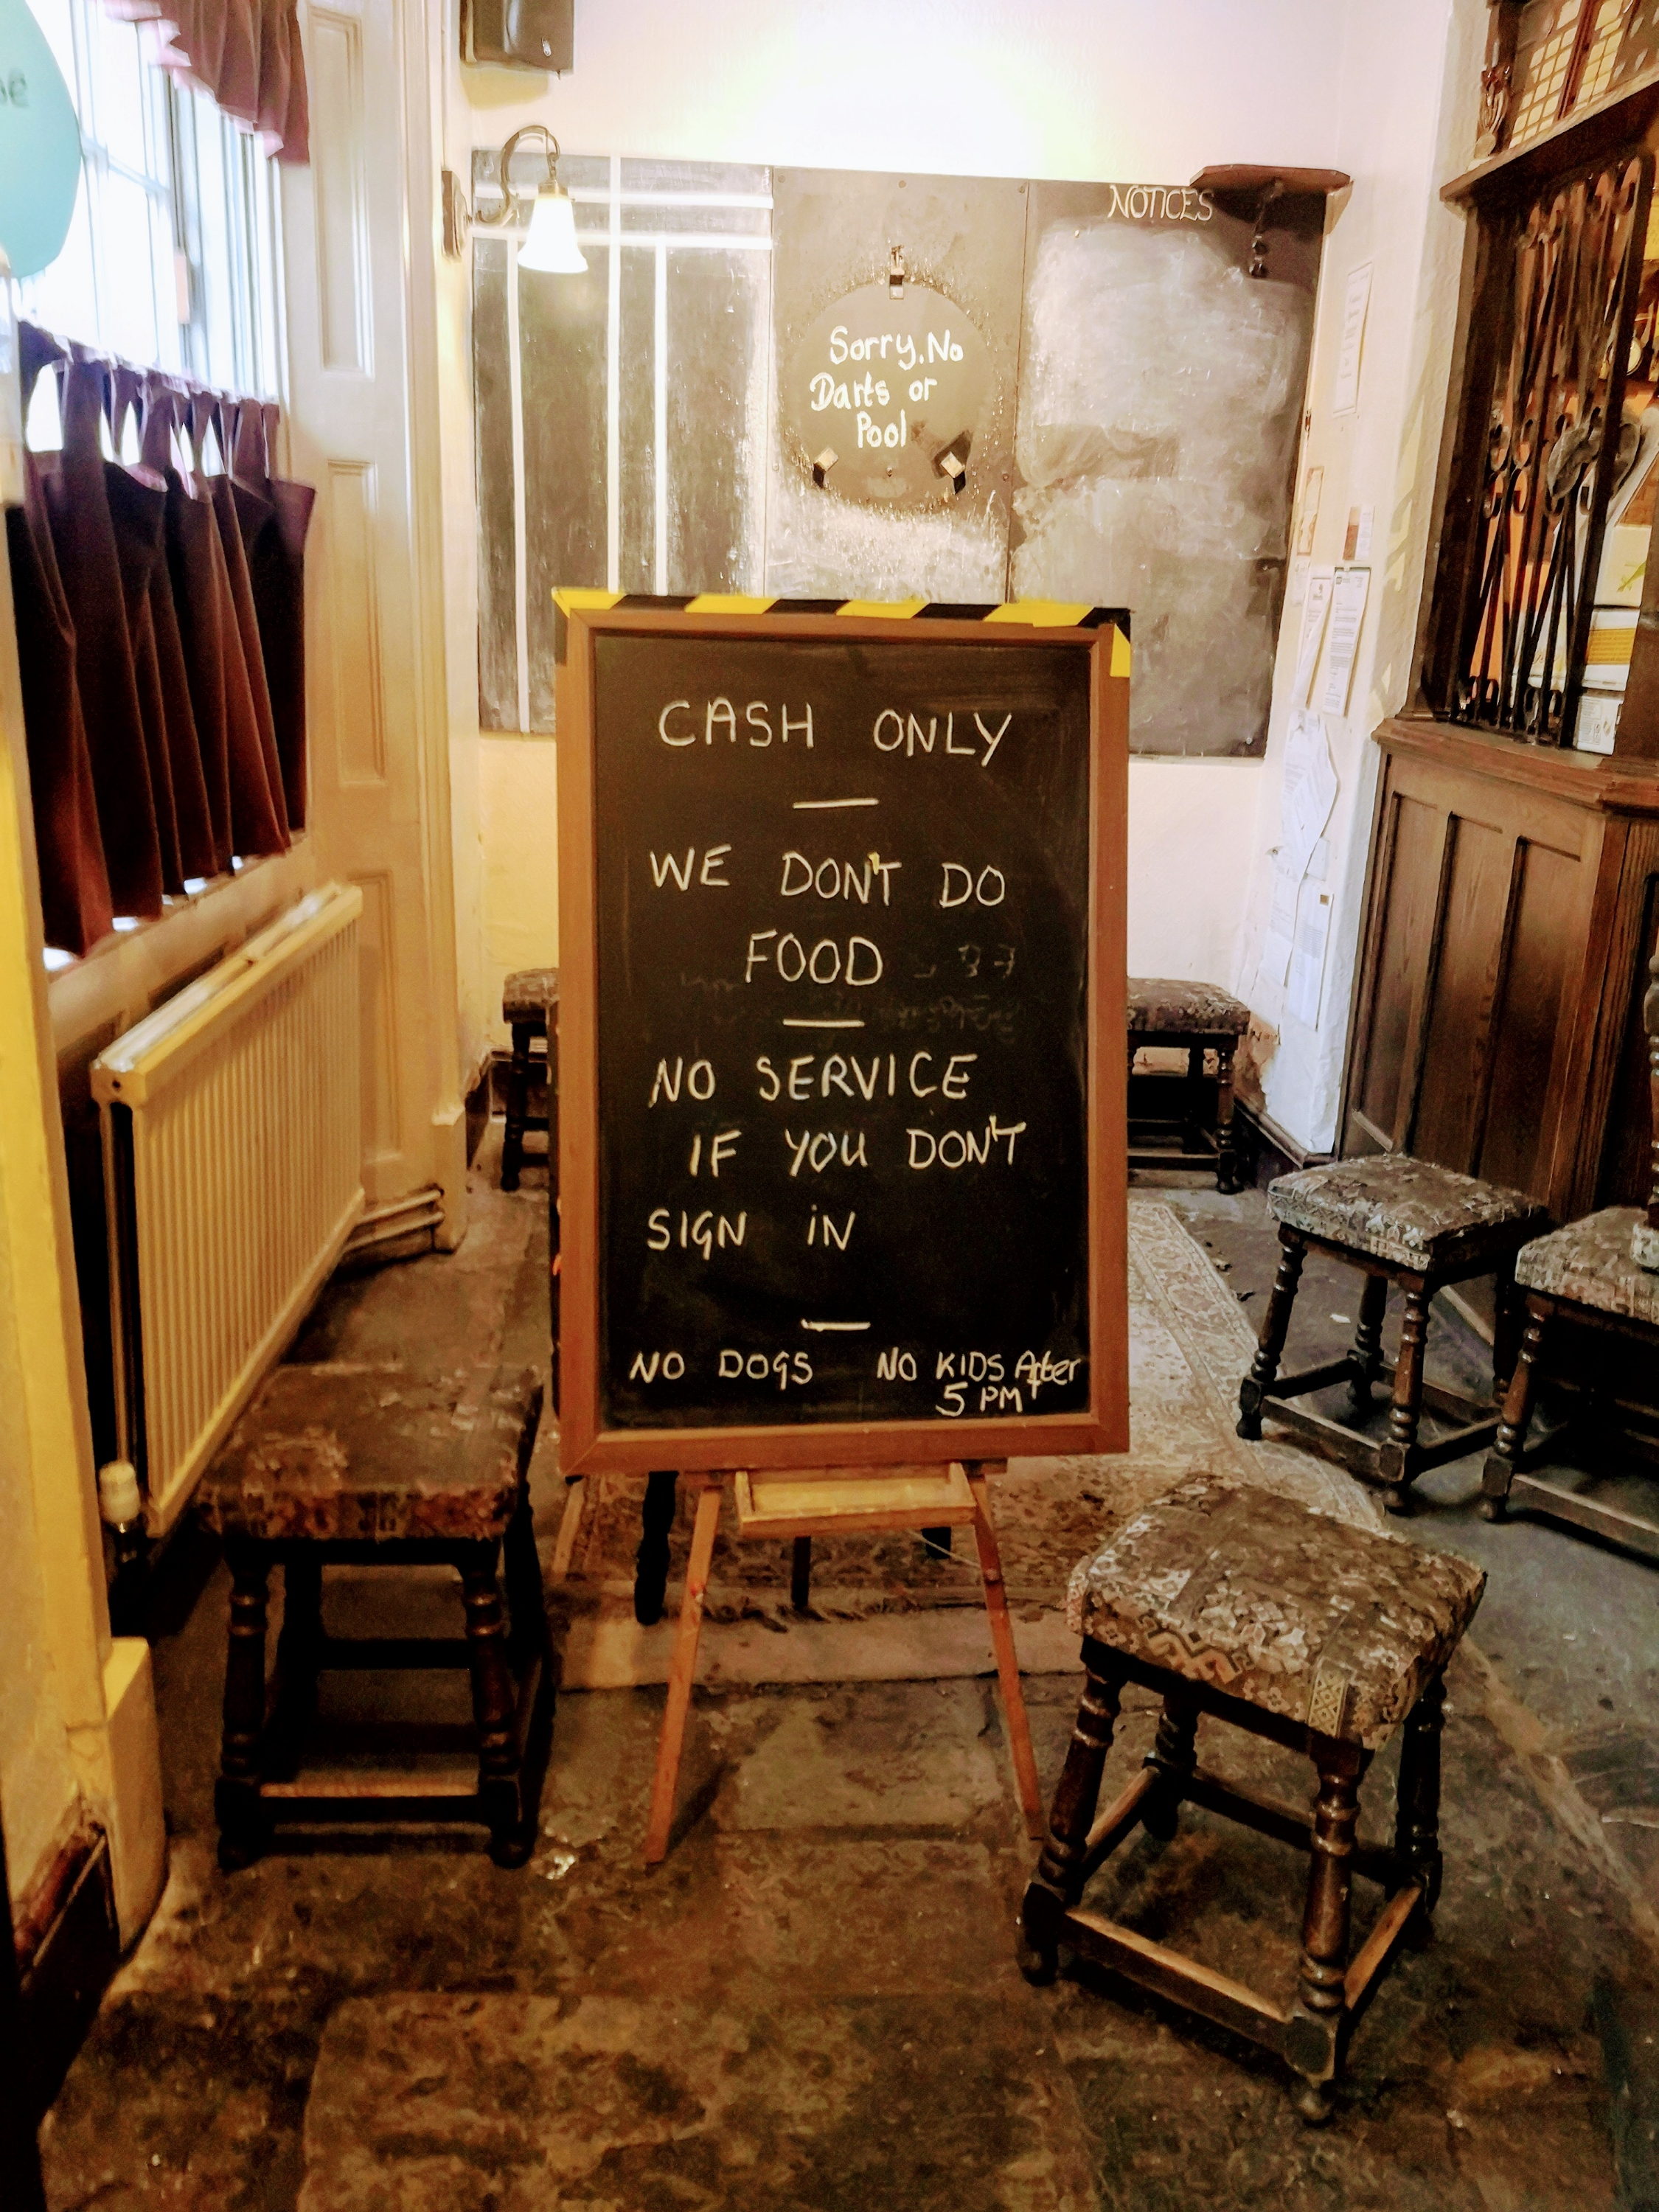 NOTICES
Sorry, No
Darts or
Pool
CASH ONLY
WE DON'T DO
FOOD
NO SERVICE
IF YOU DON'T
SIGN iN
NO DOGS NO KIDS After
5 PM